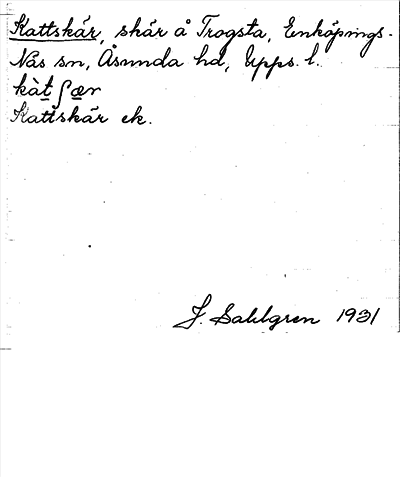 Kattskär, skär å Trogsta, Enköpings-
Näs sn, Åsunda hd, Upps. l.
kàt̲ʃæ̲r
Kattskär ek.
J. Sahlgren 1931